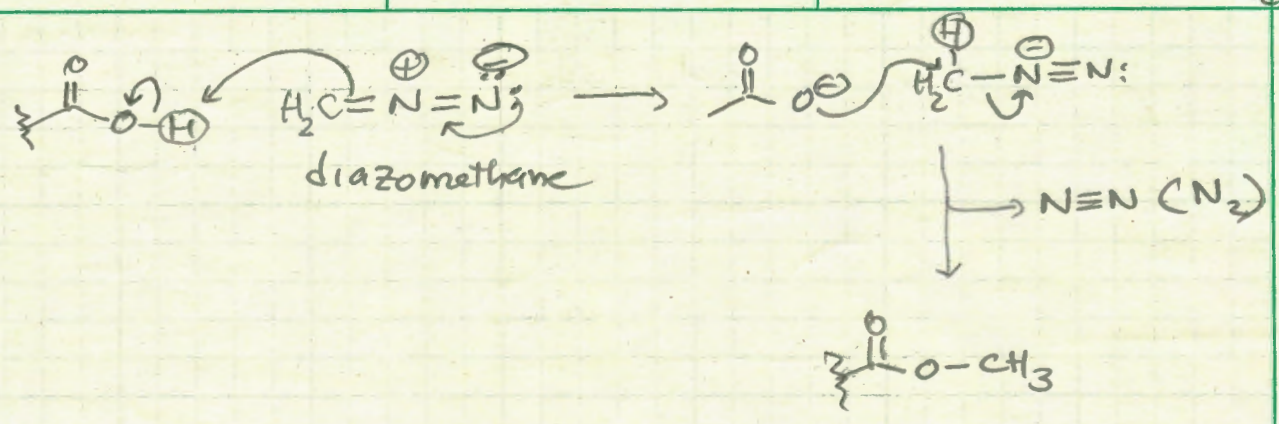 O O H H₂C=N⊕=N̈:⊖ → O O⊖ H H₂C—N⊖≡N:
diazomethane
→ N≡N (N₂)
O O—CH₃